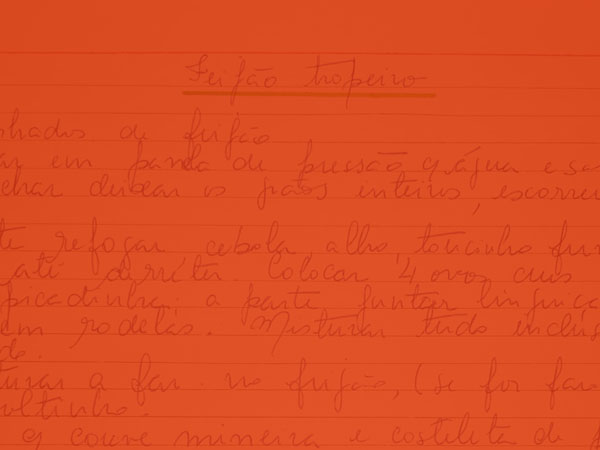 Feijão tropeiro
de feijão
em panela de pressão c/ água e
deixar os grãos inteiros, escorrer
refogar, cebola, alho, toucinho
até derreter. Colocar 4 ovos crus
picadinha; a parte juntar linguiça
em rodelas. Misturar tudo inclus
do.
turar a far. no feijão, (se for
voltinho.
c/ couve mineira e costeleta de